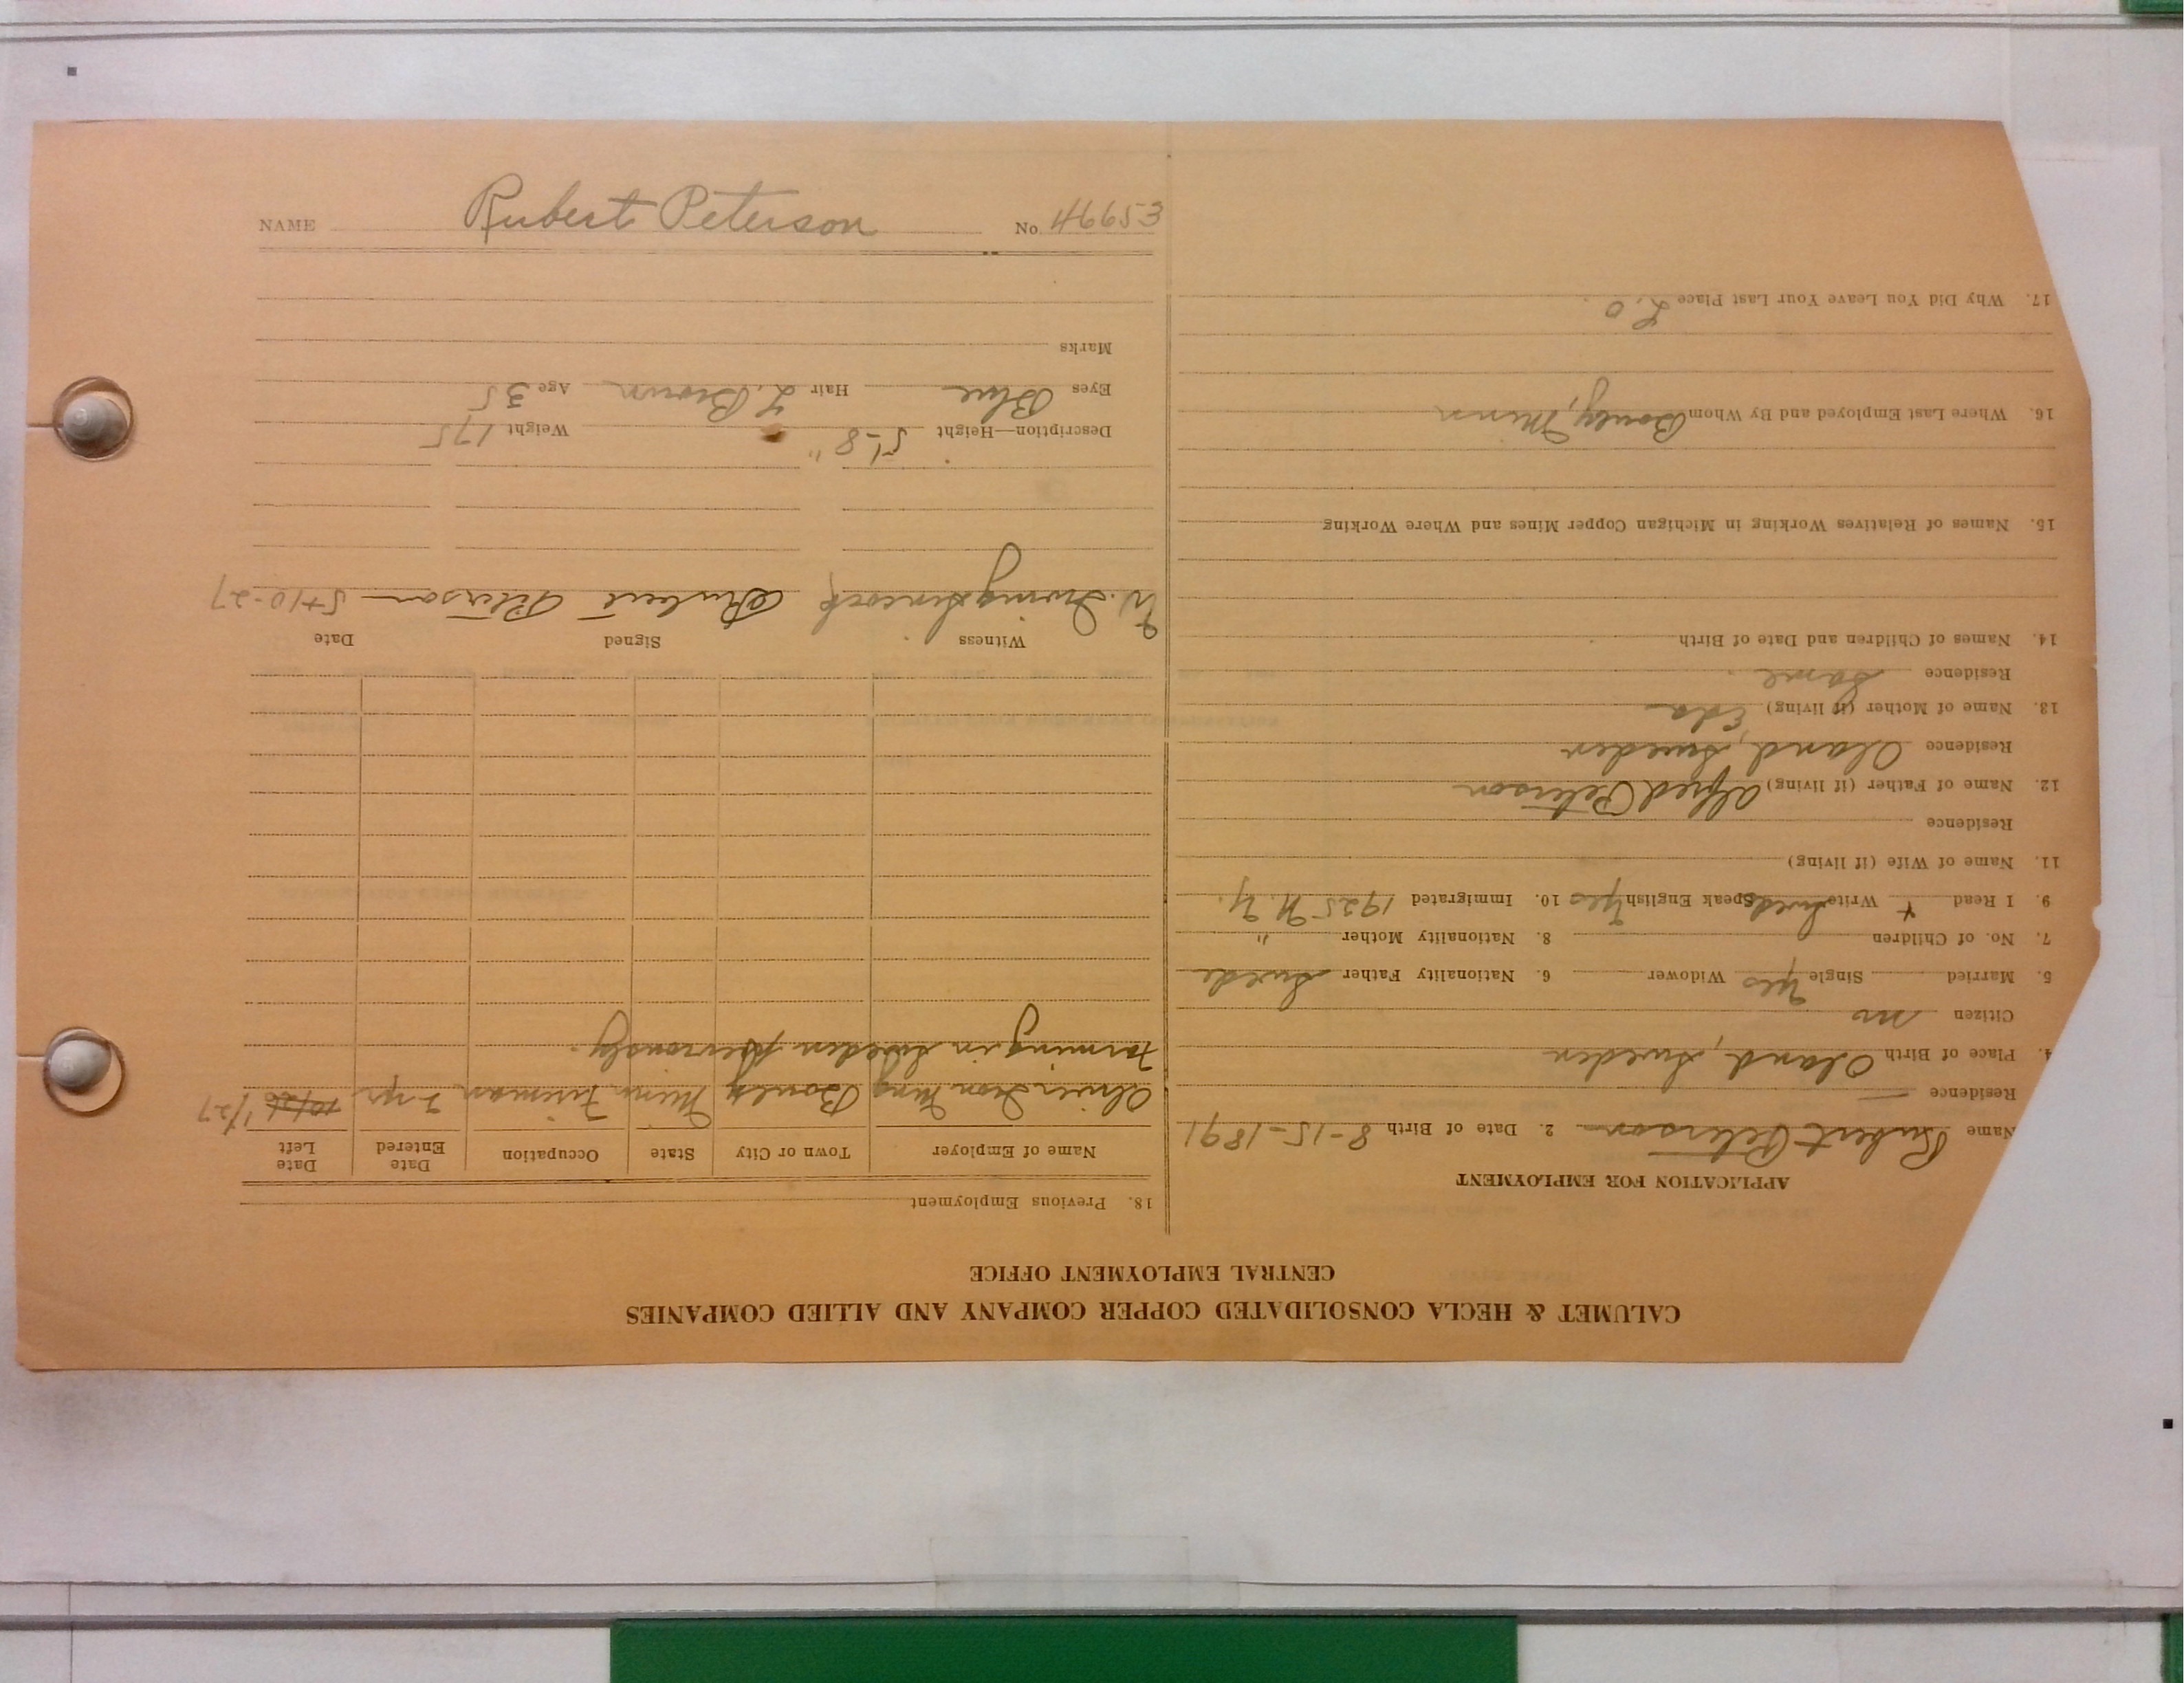 CALUMET & HECLA CONSOLIDATED COPPER COMPANY AND ALLIED COMPANIES
CENTRAL EMPLOYMENT OFFICE
APPLICATION FOR EMPLOYMENT
Name Rubert Peterson 2. Date of Birth 8-15-1891
Residence
4. Place of Birth Oland, Sweden
Citizen no
5. Married Single Yes Widower 6. Nationality Father Swede
7. No. of Children 8. Nationality Mother "
9. I Read + Write Swede Speak English Yes 10. Immigrated 1925 N.Y.
11. Name of Wife (if living)
Residence
12. Name of Father (if living) Alfred Peterson
Residence Oland, Sweden
13. Name of Mother (if living) Eda
Residence Same
14. Names of Children and Date of Birth
15. Names of Relatives Working in Michigan Copper Mines and Where Working
16. Where Last Employed and By Whom Bovey, Minn
17. Why Did You Leave Your Last Place L.O.
18. Previous Employment
Name of Employer Town or City State Occupation Date Entered Date Left
Oliver Iron Mng Bovey Minn Fireman 2 yr. 1/27
Farming in Sweden previously.
Witness Signed Date
Rubert Peterson 5-10-27
Description—Height 5'-8" Weight 175
Eyes Blue Hair L. Brown Age 35
Marks
NAME Rubert Peterson No. 46653